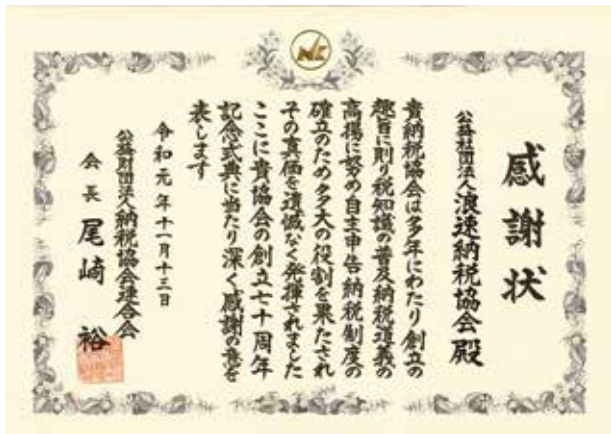 感謝状
公益社団法人浪速納税協会殿
貴納税協会は多年にわたり創立の
趣旨に則り税知識の普及納税道義の
高揚に努め自主申告納税制度の
確立のため多大の役割を果たされ
その真価を遺憾なく発揮されました
ここに貴協会の創立七十周年
記念式典に当たり深く感謝の意を
表します
令和元年十一月十三日
公益財団法人納税協会連合会
会長 尾崎 裕